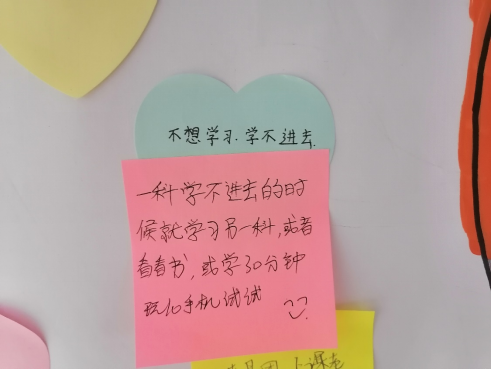 不想学习.学不进去.
一科学不进去的时
候就学习另一科,或者
看看书,或学30分钟
玩10手机试试
上课